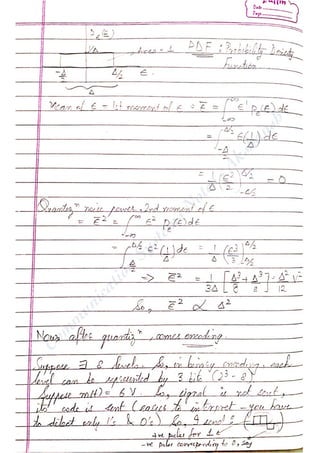 Date
Page
Pε(ε)
1/Δ , Area = 1 PDF : Probability Density
-Δ/2 Δ/2 ε. Function.
Δ
Mean of ε = 1st moment of ε = ε̅ = ∫_{-∞}^{∞} ε' pε(ε) dε
= ∫_{-Δ/2}^{Δ/2} ε(1/Δ) dε
= 1/Δ (ε²/2)|_{-Δ/2}^{Δ/2} = 0
Quantizⁿ noise power, 2nd moment of ε
= ε̅² = ∫_{-∞}^{∞} ε² pε(ε) dε
= ∫_{-Δ/2}^{Δ/2} ε² (1/Δ) dε = 1/Δ (ε³/3)|_{-Δ/2}^{Δ/2}
→ ε̅² = 1/3Δ [Δ³/8 + Δ³/8] = Δ²/12 V²
So, ε̅² ∝ Δ²
Now after quantizⁿ, comes encoding.
Suppose ∃ 8 levels, So, in binary encoding, each
level can be represented by 3 bits (2³ = 8)
Suppose m(t) = 6 V So, signal is not sent,
its code is sent (easier to interpret - you have
to detect only 1's & 0's) So, I send :
+ve pulse for 1 &
-ve pulse corresponding to 0, say